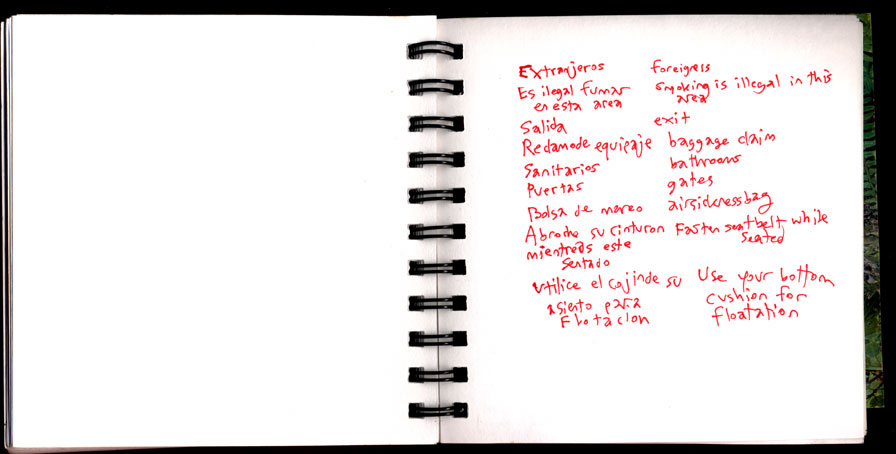 Extranjeros foreigness
Es ilegal fumar smoking is illegal in this
en esta area area
Salida exit
Reclamo de equipaje baggage claim
Sanitarios bathrooms
Puertas gates
Bolsa de mareo airsickness bag
Abroche su cinturon Fasten seatbelt while
mientreds este seated
sentado
Utilice el cojin de su Use your bottom
asiento para cushion for
Flotacion floatation